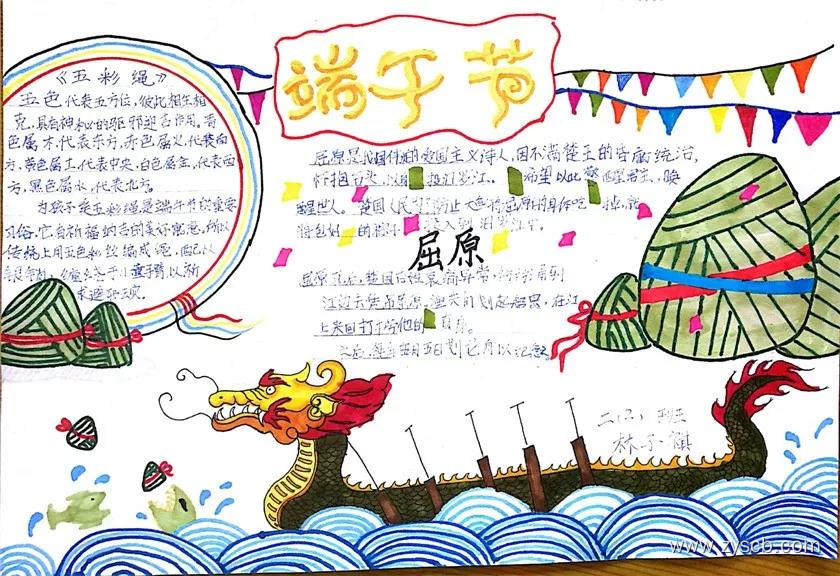 端午节
《五彩绳》
五色代表五方位，彼此相生相
克，具有神秘的驱邪迎吉作用。青
色属木，代表东方，赤色属火，代表南
方，黄色属土，代表中央，白色属金，代表西
方，黑色属水，代表北方。
为孩子系五彩绳是端午节的重要
习俗，它有祈福纳吉的美好寓意，所以
传统上用五色粉纹编成绳，
小孩手臂以祈
求避邪去灾。
屈原是我国伟大的爱国主义诗人，因不满楚王的昏庸统治，
怀抱石头，投汨罗江。希望以此唤醒君王，唤
醒世人。楚国人民为防止大鱼将屈原的身体吃掉，就
将包好的粽子投入到汨罗江中。
屈原
屈原死后，楚国百姓哀痛异常，纷纷涌到
江边去凭吊屈原，渔夫们划起船只，在江
上来回打捞他的真身。
之后，每年五月五日划龙舟以纪念
二(2)班
林子
www.zyscb.com